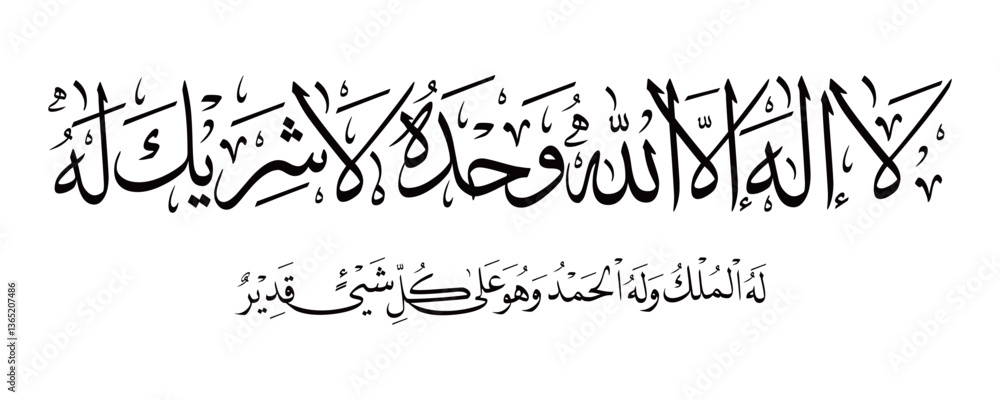 لَا إِلَهَ إِلَّا اللّٰهُ وَحْدَهُ لَا شَرِيْكَ لَهُ
لَهُ الْمُلْكُ وَلَهُ الْحَمْدُ وَهُوَ عَلَىٰ كُلِّ شَيْئٍ قَدِيْرٌ
Adobe Stock | #1365207486